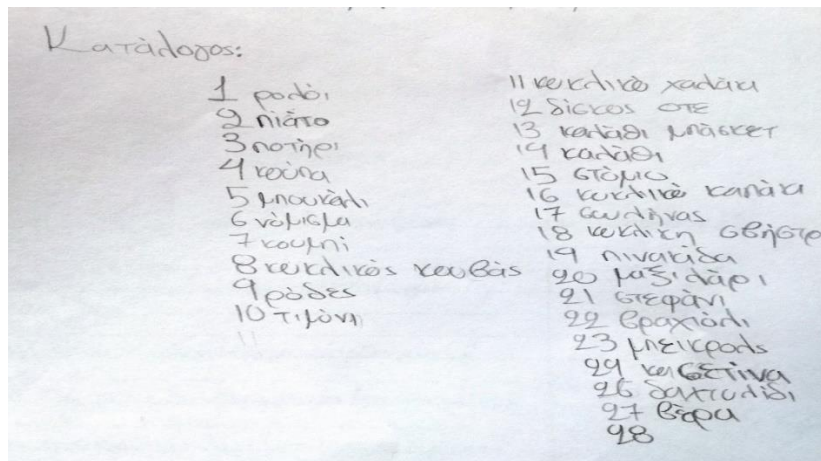 Κατάλογος:
1 ρολόι
2 πιάτο
3 ποτήρι
4 κούπα
5 μπουκάλι
6 νόμισμα
7 κουμπί
8 κυκλικός κουβάς
9 ρόδες
10 τιμόνι
11 κυκλικό χαλάκι
12 δίσκος
13 καλάθι μπάσκετ
14 καλάθι
15 στόμιο
16 κυκλικό καπάκι
17 σωλήνας
18 κυκλική σβήστρα
19 πινακίδα
20 μαξιλάρι
21 στεφάνι
22 βραχιόλι
23
24 κασετίνα
26 δαχτυλίδι
27 βέρα
28